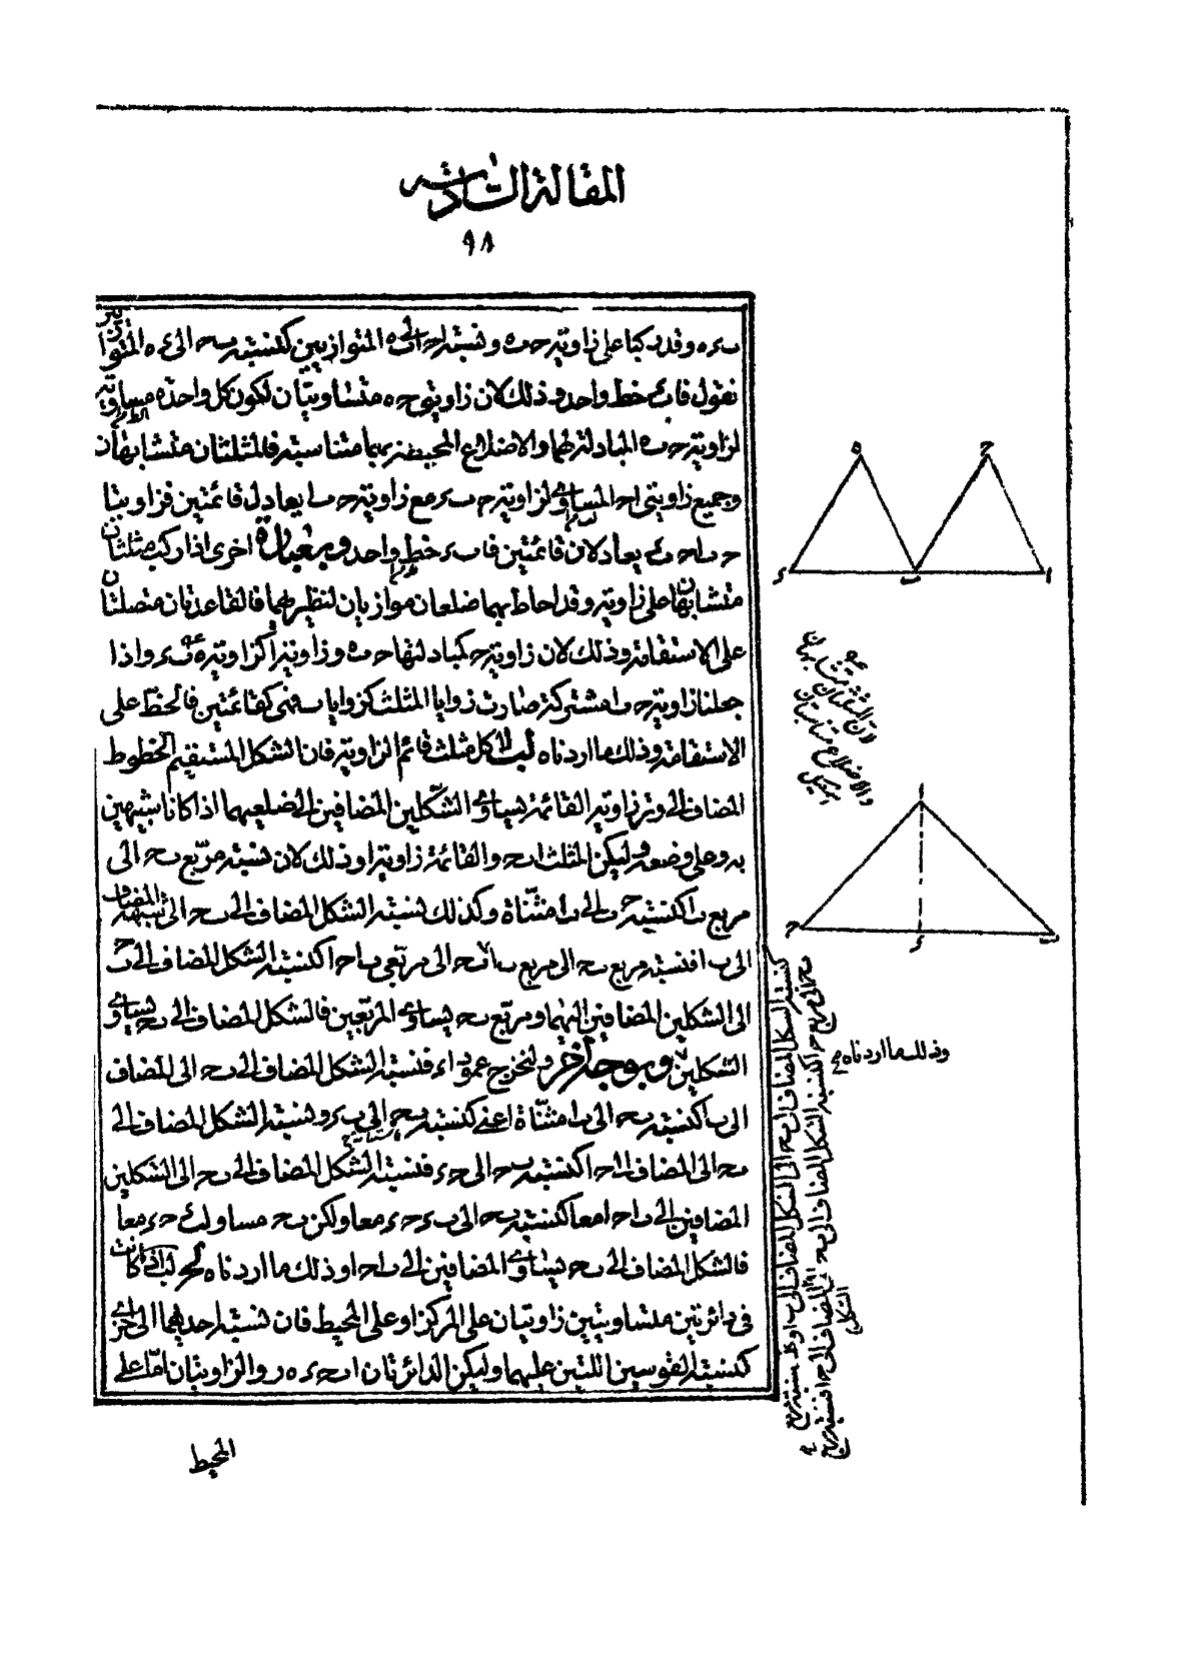 المقالة السادسة
٩٨
ب ء ه وقد ركبا على زاوية ح ب ه ونسبة ا ح الى ب ه المتوازيين كنسبة ب ح الى ء ه المتوازيين
نقول فا ب ء خط واحد وذلك لان زاويتى ح ه متساويتان لكون كل واحدة مساوية
لزاوية ح ب ه المبادلة لهما والاضلاع المحيطة بهما متناسبة فالمثلثان متشابهان
وجميع زاويتى ا ح المساوى لزاوية ح ب ء مع زاوية ح ب ا يعادل قائمتين فزاويتا
ح ب ا ح ب ء يعادلان قائمتين فا ب ء خط واحد وبعبارة اخرى اذا ركب مثلثان
متشابهان على زاوية وقد احاط بهما ضلعان موازيان لنظيريهما فالقاعدتان متصلتان
على الاستقامة وذلك لان زاوية ح كمبادلتها ح ب ه وزاوية ا كزاوية ه ب ء واذا
جعلنا زاوية ح ب ا مشتركة صارت زوايا المثلث كزوايا ب فهى كقائمتين فالخط على
الاستقامة وذلك ما اردناه لا كل مثلث قائم الزاوية فان الشكل المستقيم الخطوط
المضاف الى وتر زاويته القائمة يساوى الشكلين المضافين الى ضلعيها اذا كانا شبيهين
به وعلى وضعه وليكن المثلث ا ب ح والقائمة زاوية ا وذلك لان نسبة مربع ب ح الى
مربع ب ا كنسبة ح ب الى ب ا مثناة وكذلك نسبة الشكل المضاف الى ب ح الى شبيهه المضاف
الى ب ا فنسبة مربع ب ح الى مربع ب ا ب ح الى مربعى ب ا ح ا كنسبة الشكل المضاف الى ب ح
الى الشكلين المضافين اليهما ومربع ب ح يساوى المربعين فالشكل المضاف الى ب ح يساوى
الشكلين وبوجه آخر ولنخرج عمود ا ء فنسبة الشكل المضاف الى ب ح الى المضاف
الى ب ا كنسبة ب ح الى ب ا مثناة اعنى كنسبة ب ح الى ب ء ونسبة الشكل المضاف الى
ب ح الى المضاف الى ح ا كنسبة ب ح الى ح ء فنسبة الشكل المضاف الى ب ح الى الشكلين
المضافين الى ب ا ح ا معا كنسبة ب ح الى ب ء ح ء معا ولكن ب ح مساو لب ء ح ء معا
فالشكل المضاف الى ب ح يساوى المضافين الى ب ا ح ا وذلك ما اردناه لب اذا كانت
فى دائرتين متساويتين زاويتان على المركز او على المحيط فان نسبة احديهما الى الاخرى
كنسبة القوسين اللتين عليهما وليكن الدائرتان ا ب ح ء ه ر والزاويتان اما على
المحيط
ه
ح
ء
ب
ا
لان المثلثان متشابهان
والاضلاع متناسبان
ا
ح
ء
ب
وذلك ما اردناه